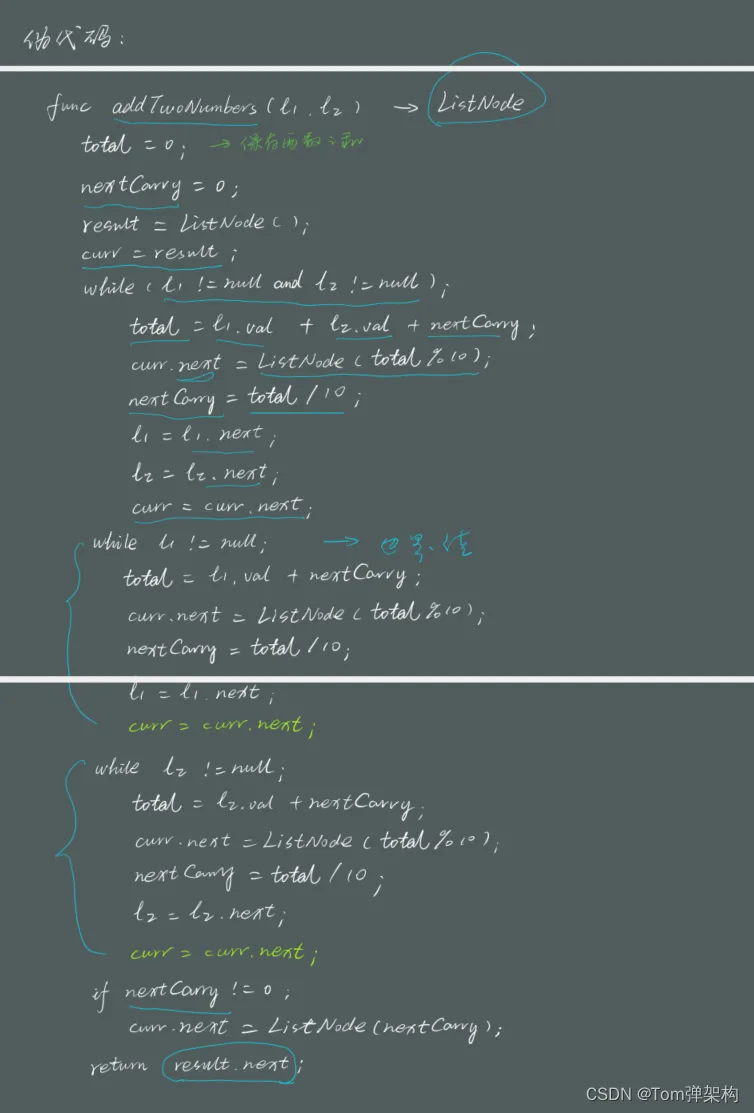 伪代码:
func addTwoNumbers(l1, l2) → ListNode
total = 0; → 保存两数之和
nextCarry = 0;
result = ListNode();
curr = result;
while (l1 != null and l2 != null);
total = l1.val + l2.val + nextCarry;
curr.next = ListNode(total%10);
nextCarry = total/10;
l1 = l1.next;
l2 = l2.next;
curr = curr.next;
while l1 != null; → 进
total = l1.val + nextCarry;
curr.next = ListNode(total%10);
nextCarry = total/10;
l1 = l1.next;
curr = curr.next;
while l2 != null;
total = l2.val + nextCarry;
curr.next = ListNode(total%10);
nextCarry = total/10;
l2 = l2.next;
curr = curr.next;
if nextCarry != 0;
curr.next = ListNode(nextCarry);
return result.next;
CSDN @Tom弹架构